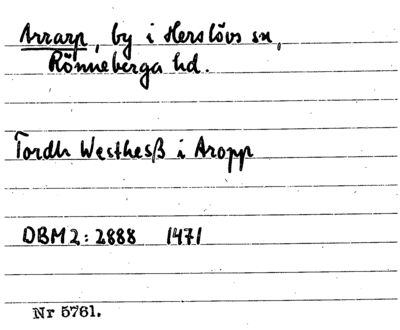 Arrarp, by i Herslövs sn,
Rönneberga hd.
Tordh Westhesß i Aropp
DBM 2:2888 1471
Nr 5761.